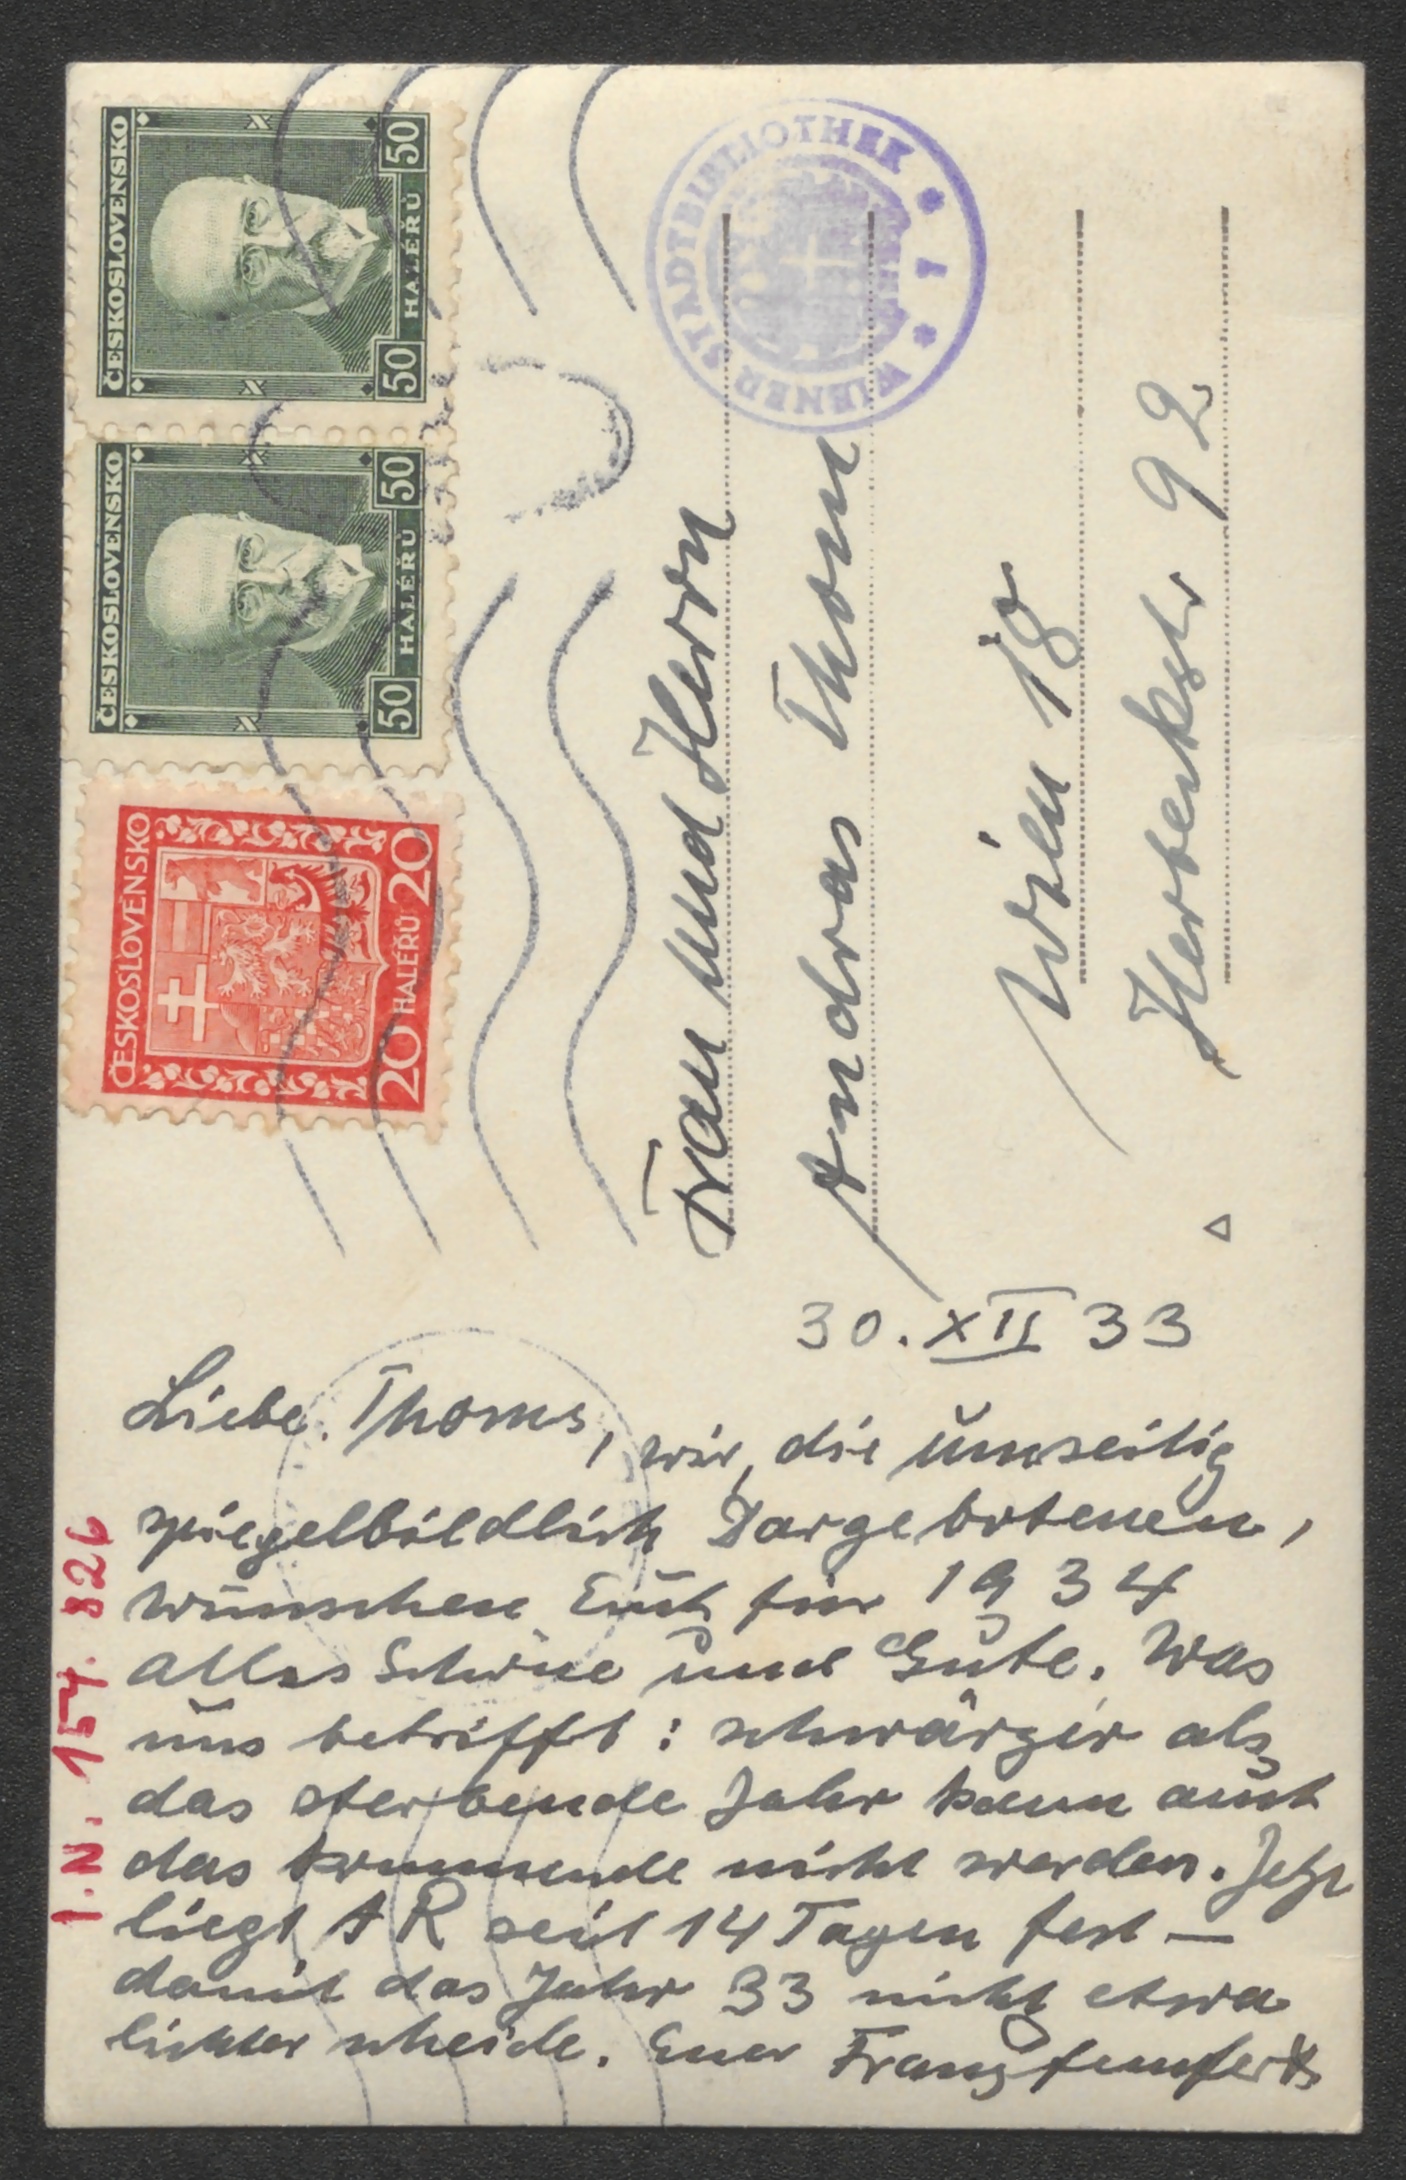 ČESKOSLOVENSKO
50 HALÉŘŮ 50
ČESKOSLOVENSKO
50 HALÉŘŮ 50
ČESKOSLOVENSKO
20 HALÉŘŮ 20
WIENER STADTBIBLIOTHEK * 1 *
Frau und Herrn
Andreas Thom
Wien 18
Herbeckstr 92
30. XII 33
Liebe Thoms, wir, die umseitig
spiegelbildlich Dargebotenen,
wünschen Euch für 1934
alles Schöne und Gute. Was
uns betrifft: schwärzer als
das sterbende Jahr kann auch
das kommende nicht werden. Jetzt
liegt AR seit 14 Tagen fest —
damit das Jahr 33 nicht etwa
lichter scheide. Euer Franz Pfemferts
I.N. 154.826